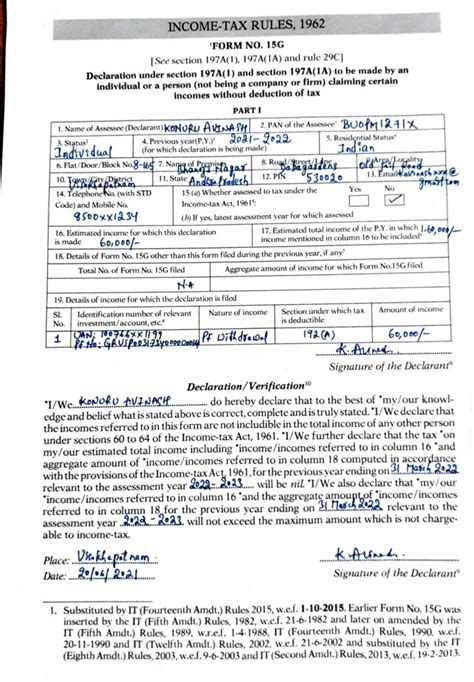 INCOME-TAX RULES, 1962
¹FORM NO. 15G
[See section 197A(1), 197A(1A) and rule 29C]
Declaration under section 197A(1) and section 197A(1A) to be made by an
individual or a person (not being a company or firm) claiming certain
incomes without deduction of tax
PART I
1. Name of Assessee (Declarant) KONURU AVINASH 2. PAN of the Assessee¹ BUOPM1271X
3. Status² Individual 4. Previous year(P.Y.)³ 2021-2022 (for which declaration is being made) 5. Residential Status⁴ Indian
6. Flat/Door/Block No. 8-165 7. Name of Premises Bhanoji Nagar 8. Road/Street/Lane 9. Area/Locality
10. Town/City/District Visakhapatnam 11. State Andhra Pradesh 12. PIN 530020 13. Email
14. Telephone No. (with STD Code) and Mobile No. 8500xx1234 15 (a) Whether assessed to tax under the Income-tax Act, 1961⁵: Yes No ✓
(b) If yes, latest assessment year for which assessed
16. Estimated income for which this declaration is made 60,000/- 17. Estimated total income of the P.Y. in which income mentioned in column 16 to be included⁶ 1,60,000/-
18. Details of Form No. 15G other than this form filed during the previous year, if any⁷
Total No. of Form No. 15G filed Aggregate amount of income for which Form No.15G filed
N.A
19. Details of income for which the declaration is filed
Sl. No. Identification number of relevant investment/account, etc.⁸ Nature of income Section under which tax is deductible Amount of income
1 UAN: 100766xx1199 PF Withdrawal 192(A) 60,000/-
PF No:
K. Avinash
Signature of the Declarant⁹
Declaration/Verification¹⁰
*I/We KONURU AVINASH do hereby declare that to the best of *my/our knowl-
edge and belief what is stated above is correct, complete and is truly stated. *I/We declare that
the incomes referred to in this form are not includible in the total income of any other person
under sections 60 to 64 of the Income-tax Act, 1961. *I/We further declare that the tax *on
my/our estimated total income including *income/incomes referred to in column 16 *and
aggregate amount of *income/incomes referred to in column 18 computed in accordance
with the provisions of the Income-tax Act, 1961, for the previous year ending on 31 March 2022
relevant to the assessment year 2022-2023 will be nil. *I/We also declare that *my/our
*income/incomes referred to in column 16 *and the aggregate amount of *income/incomes
referred to in column 18 for the previous year ending on 31 March 2022 relevant to the
assessment year 2022-2023 will not exceed the maximum amount which is not charge-
able to income-tax.
Place: Visakhapatnam.
Date: 20/04/2021
K. Avinash
Signature of the Declarant⁹
1. Substituted by IT (Fourteenth Amdt.) Rules 2015, w.e.f. 1-10-2015. Earlier Form No. 15G was
inserted by the IT (Fifth Amdt.) Rules, 1982, w.e.f. 21-6-1982 and later on amended by the
IT (Fifth Amdt.) Rules, 1989, w.r.e.f. 1-4-1988, IT (Fourteenth Amdt.) Rules, 1990, w.e.f.
20-11-1990 and IT (Twelfth Amdt.) Rules, 2002, w.e.f. 21-6-2002 and substituted by the IT
(Eighth Amdt.) Rules, 2003, w.e.f. 9-6-2003 and IT (Second Amdt.) Rules, 2013, w.e.f. 19-2-2013.